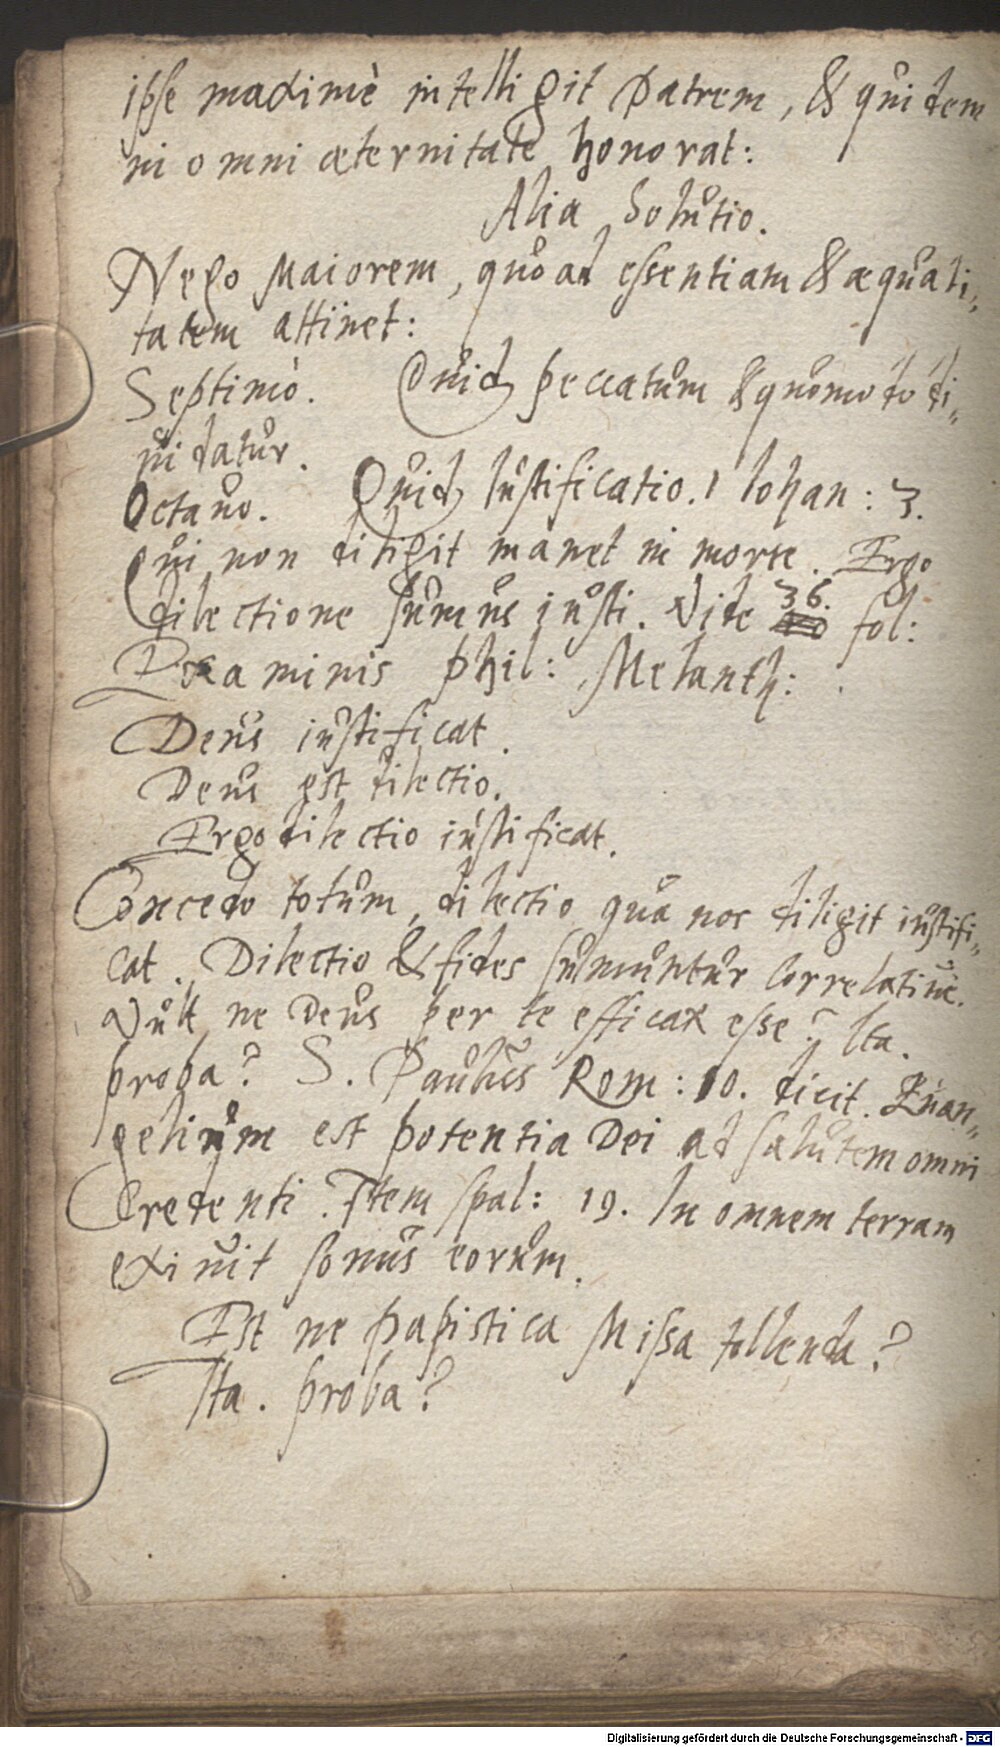 ipse maximè intelligit Patrem, & quidem
in omni æternitate honorat:
Alia Solutio.
Nego Maiorem, quo ad essentiam & æquali=
tatem attinet:
Septimò. Quid peccatum & quomodo di=
uidatur.
Octauo. Quid Iustificatio. 1 Iohan: 3.
Qui non diligit manet in morte. Ergo
dilectione sumus iusti. Vide 36. fol:
Examinis phil: Melanth:
Deus iustificat.
Deus est dilectio.
Ergo dilectio iustificat.
Concedo totum, dilectio qua nos diligit iustifi=
cat. Dilectio & fides sumuntur correlatiuè.
Vult ne Deus per te efficax esse? Ita.
proba? S. Paulus Rom: 10. dicit. Euan=
gelium est potentia Dei ad salutem omni
Credenti. Item psal: 19. In omnem terram
exiuit sonus eorum.
Est ne papistica Missa tollenda?
Ita. proba?
Digitalisierung gefördert durch die Deutsche Forschungsgemeinschaft - DFG